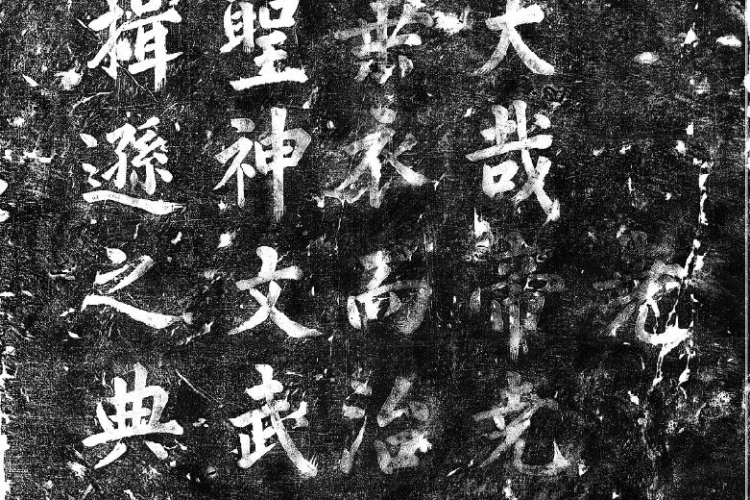 堯
大哉帝堯
垂衣而治
聖神文武
揖遜之典